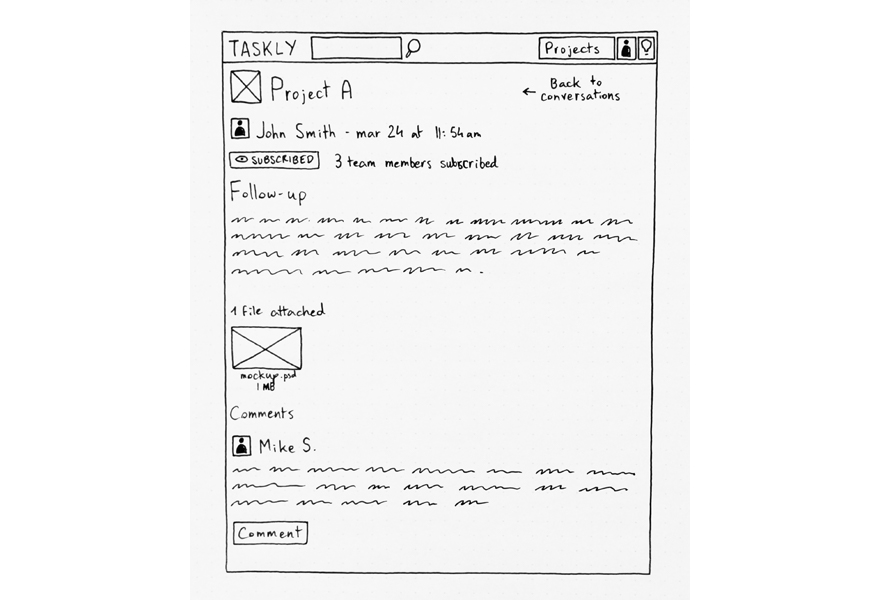 TASKLY
Projects
Project A
← Back to
conversations
John Smith - mar 24 at 11:54am
SUBSCRIBED
3 team members subscribed
Follow-up
1 file attached
mockup.psd
1 MB
Comments
Mike S.
Comment